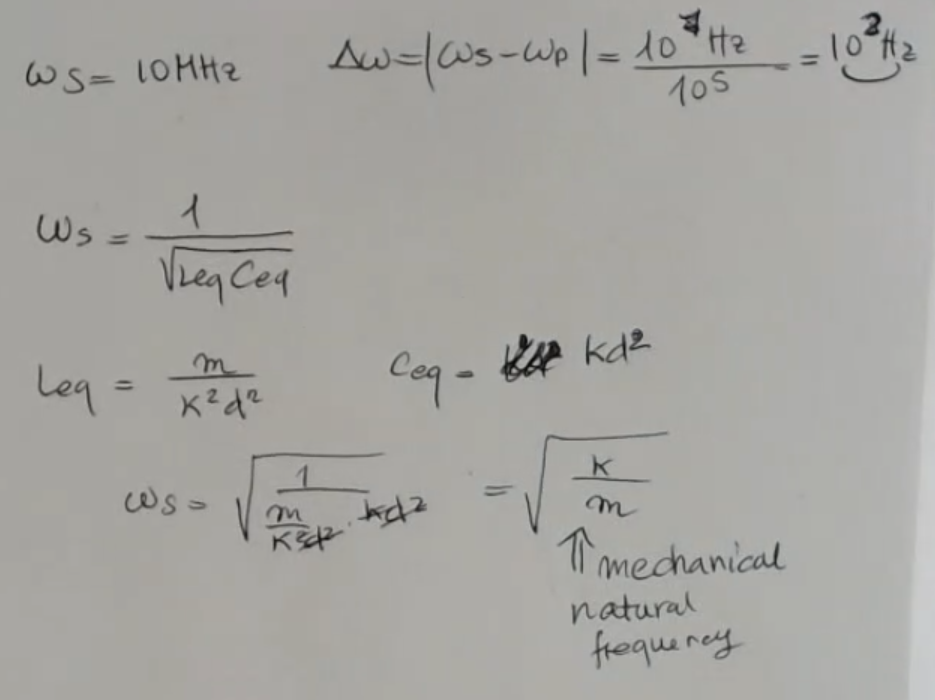 ωs = 10MHz Δω=|ωs-ωp| = 10⁷Hz / 10⁵ = 10²Hz
ωs = 1 / √(Leq Ceq)
Leq = m / K²d² Ceq = kd²
ωs = √(1 / (m / K²d² · kd²)) = √(K / m)
⇑ mechanical
natural
frequency